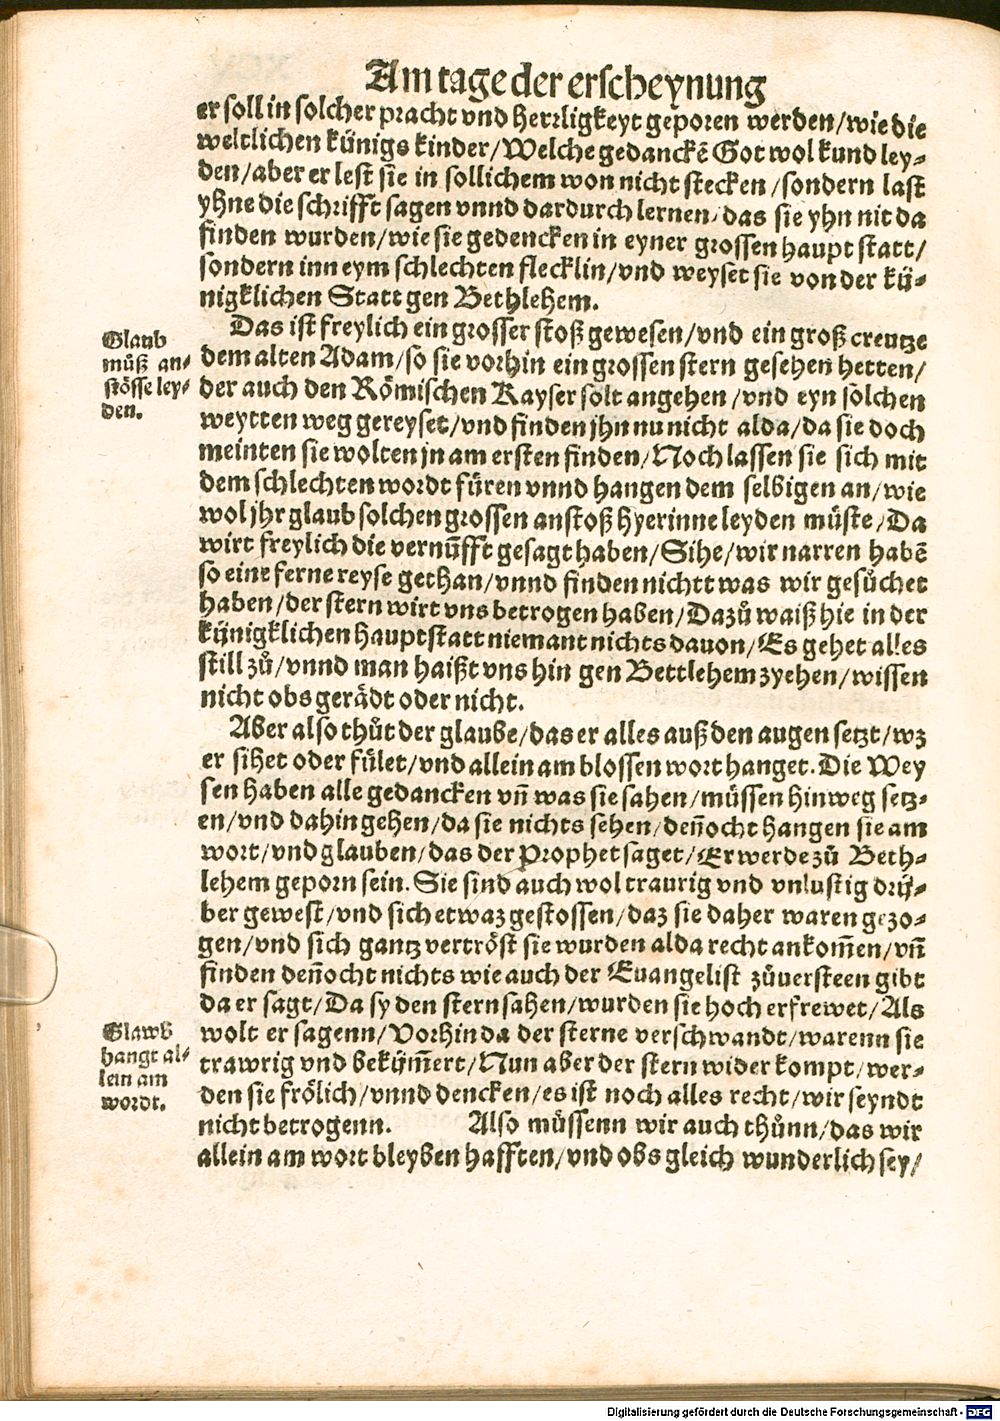 Am tage der erscheynung
er soll in solcher pracht vnd herrligkeyt geporen werden/wie die
weltlichen künigs kinder/Welche gedanckē Got wol kund ley-
den/aber er lest sie in sollichem won nicht stecken/sondern last
yhne die schrifft sagen vnnd dardurch lernen/das sie yhn nit da
finden wurden/wie sie gedencken in eyner grossen haupt statt/
sondern inn eym schlechten flecklin/vnd weyset sie von der kü-
nigklichen Statt gen Bethlehem.
Das ist freylich ein grosser stoß gewesen/vnd ein groß creutze
dem alten Adam/so sie vorhin ein grossen stern gesehen hetten/
der auch den Römischen Kayser solt angehen/vnd eyn solchen
weytten weg gereyset/vnd finden jhn nu nicht alda/da sie doch
meinten sie wolten jn am ersten finden/Noch lassen sie sich mit
dem schlechten wordt füren vnnd hangen dem selbigen an/wie
wol jhr glaub solchen grossen anstoß hyerinne leyden müste/Da
wirt freylich die vernūfft gesagt haben/Sihe/wir narren habē
so eine ferne reyse gethan/vnnd finden nichtt was wir gesůchet
haben/der stern wirt vns betrogen haben/Dazů waiß hie in der
künigklichen hauptstatt niemant nichts dauon/Es gehet alles
still zů/vnnd man haißt vns hin gen Bettlehem zyehen/wissen
nicht obs gerädt oder nicht.
Aber also thůt der glaube/das er alles auß den augen setzt/wz
er sihet oder fület/vnd allein am blossen wort hanget. Die Wey
sen haben alle gedancken vn̄ was sie sahen/müssen hinweg setz-
en/vnd dahin gehen/da sie nichts sehen/den̄ocht hangen sie am
wort/vnd glauben/das der Prophet saget/Er werde zů Beth-
lehem geporn sein. Sie sind auch wol traurig vnd vnlustig drü-
ber gewest/vnd sich etwaz gestossen/daz sie daher waren gezo-
gen/vnd sich gantz vertröst sie wurden alda recht ankom̄en/vn̄
finden den̄ocht nichts wie auch der Euangelist zůuersteen gibt
da er sagt/Da sy den stern sahen/wurden sie hoch erfrewet/Als
wolt er sagenn/Vorhin da der sterne verschwandt/warenn sie
trawrig vnd bekům̄ert/Nun aber der stern wider kompt/wer-
den sie frölich/vnnd dencken/es ist noch alles recht/wir seyndt
nicht betrogenn. Also müssenn wir auch thůnn/das wir
allein am wort bleyben hafften/vnd obs gleich wunderlich sey/
Glaub
müß an-
stösse ley-
den.
Glawb
hangt al-
lein am
wordt.
Digitalisierung gefördert durch die Deutsche Forschungsgemeinschaft - DFG